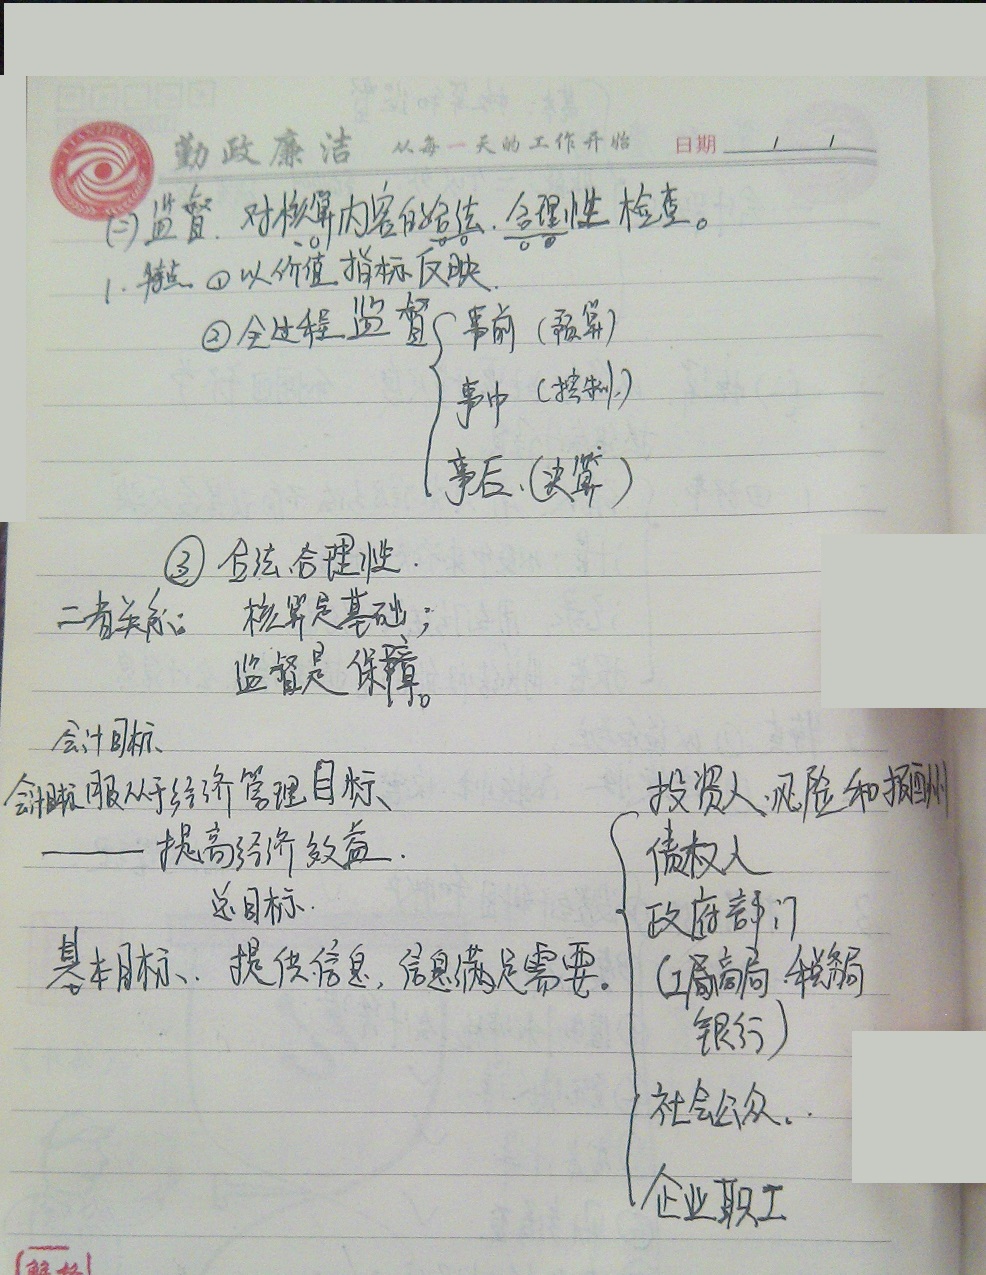 勤政廉洁 从每一天的工作开始 日期 / /
(二) 监督. 对核算内容的合法、合理性检查。
1. 特点 ① 以价值指标反映.
② 全过程监督 事前 (预算)
事中 (控制)
事后. (决算)
③ 合法合理性.
二者关系: 核算是基础;
监督是保障。
会计目标
会计目标服从于经济管理目标
—— 提高经济效益.
总目标.
基本目标. 提供信息, 信息满足需要。
投资人.风险和报酬
债权人
政府部门
(工商局.税务局
银行)
社会公众..
企业职工